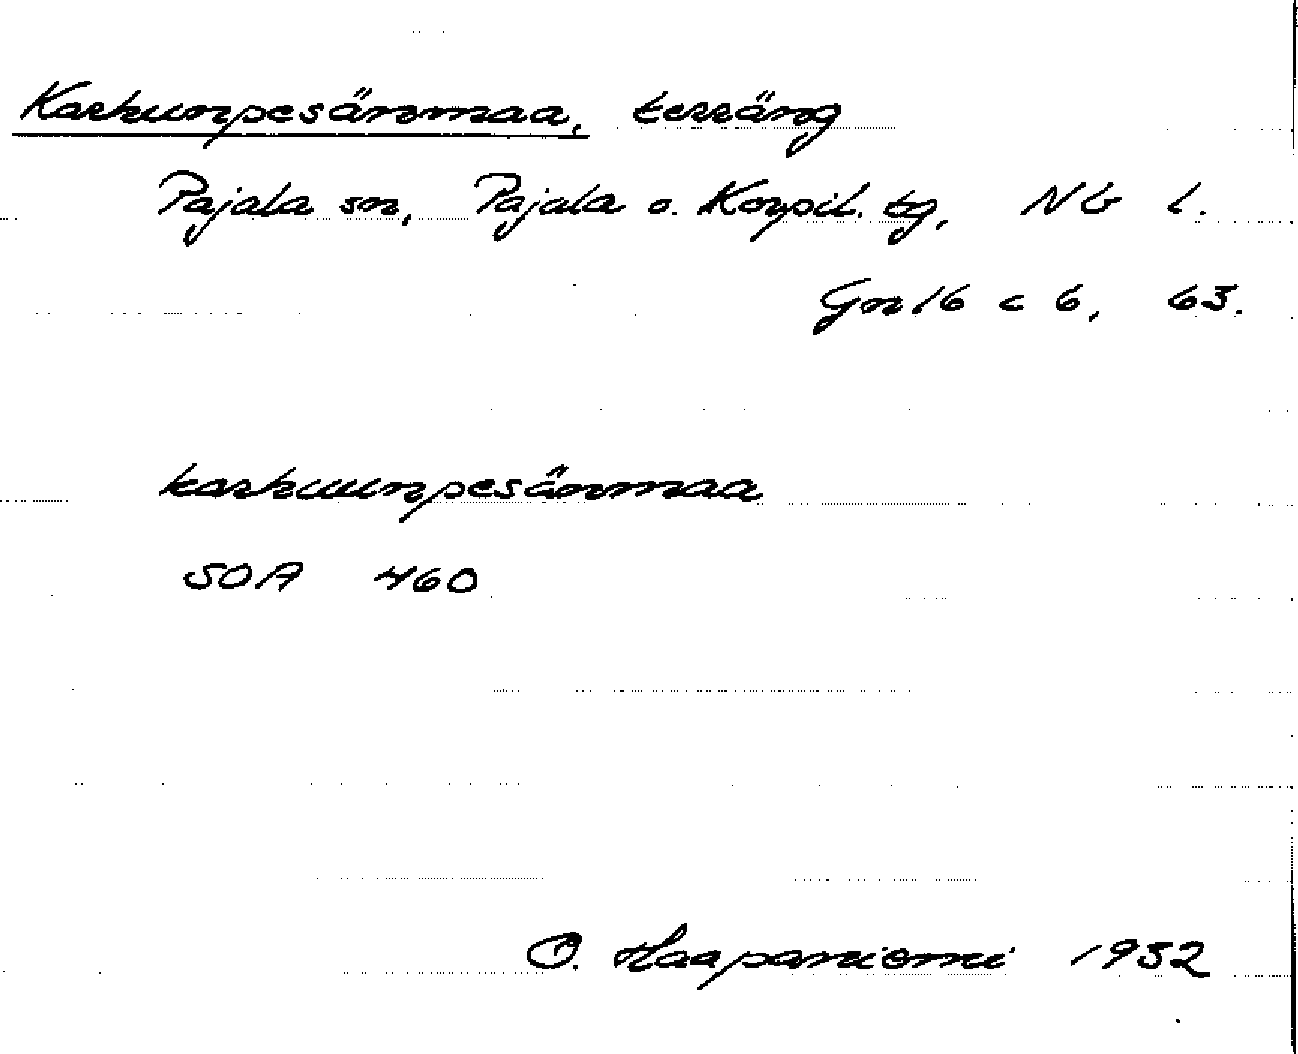 Karkunpesänmaa, terräng
Pajala sn, Pajala o. Korpil. tg, Nb l.
Gn 16 c 6, 63.
karkuunpesänmaa
SOA 460
O. Haapaniemi 1932